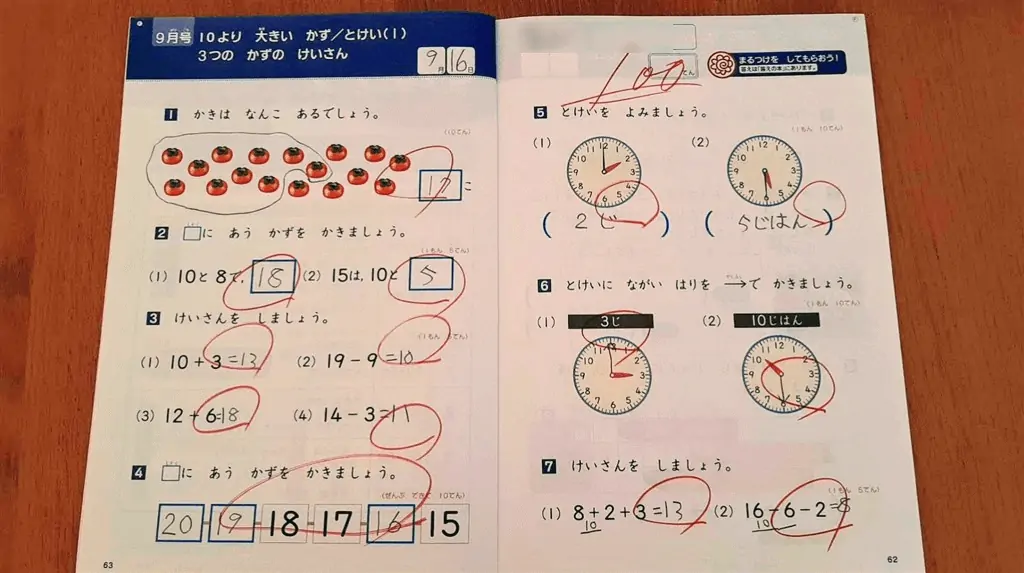 9月号 10より 大きい かず/とけい(1)
3つの かずの けいさん
9月16日
1 かきは なんこ あるでしょう。
(10てん)
17
2 □に あう かずを かきましょう。
(1もん 5てん)
(1) 10と 8で、18 (2) 15は、10と 5
3 けいさんを しましょう。
(1もん 5てん)
(1) 10+3=13 (2) 19-9=10
(3) 12+6=18 (4) 14-3=11
4 □に あう かずを かきましょう。
(ぜんぶ できて 10てん)
20-19-18-17-16-15
63
100てん
まるつけを してもらおう!
答えは「答えの本」にあります。
5 とけいを よみましょう。
(1もん 10てん)
(1) (2)
(2じ) (5じはん)
6 とけいに ながい はりを →で かきましょう。
(1もん 10てん)
(1) 3じ (2) 10じはん
7 けいさんを しましょう。
(1もん 5てん)
(1) 8+2+3=13 (2) 16-6-2=8
10 10
62